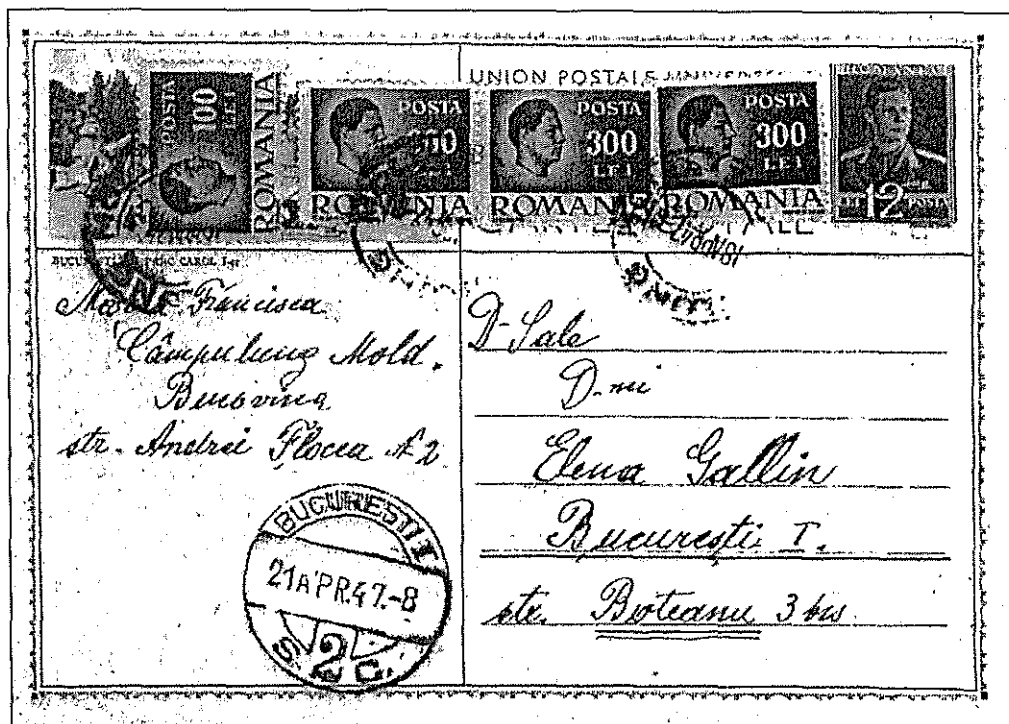 UNION POSTALE
POSTA
100
LEI
ROMANIA
POSTA
300
LEI
ROMANIA
POSTA
300
LEI
ROMANIA
POSTA
300
LEI
ROMANIA
12
PARC CAROL I
Francisca
Câmpulung Mold.
Bucovina
str. Andrei Flocea № 2
BUCUREȘTI I
21 APR.47.-8
2
D-Sale
D-nei
Elena Gallin
București I.
str. Boteanu 3 bis